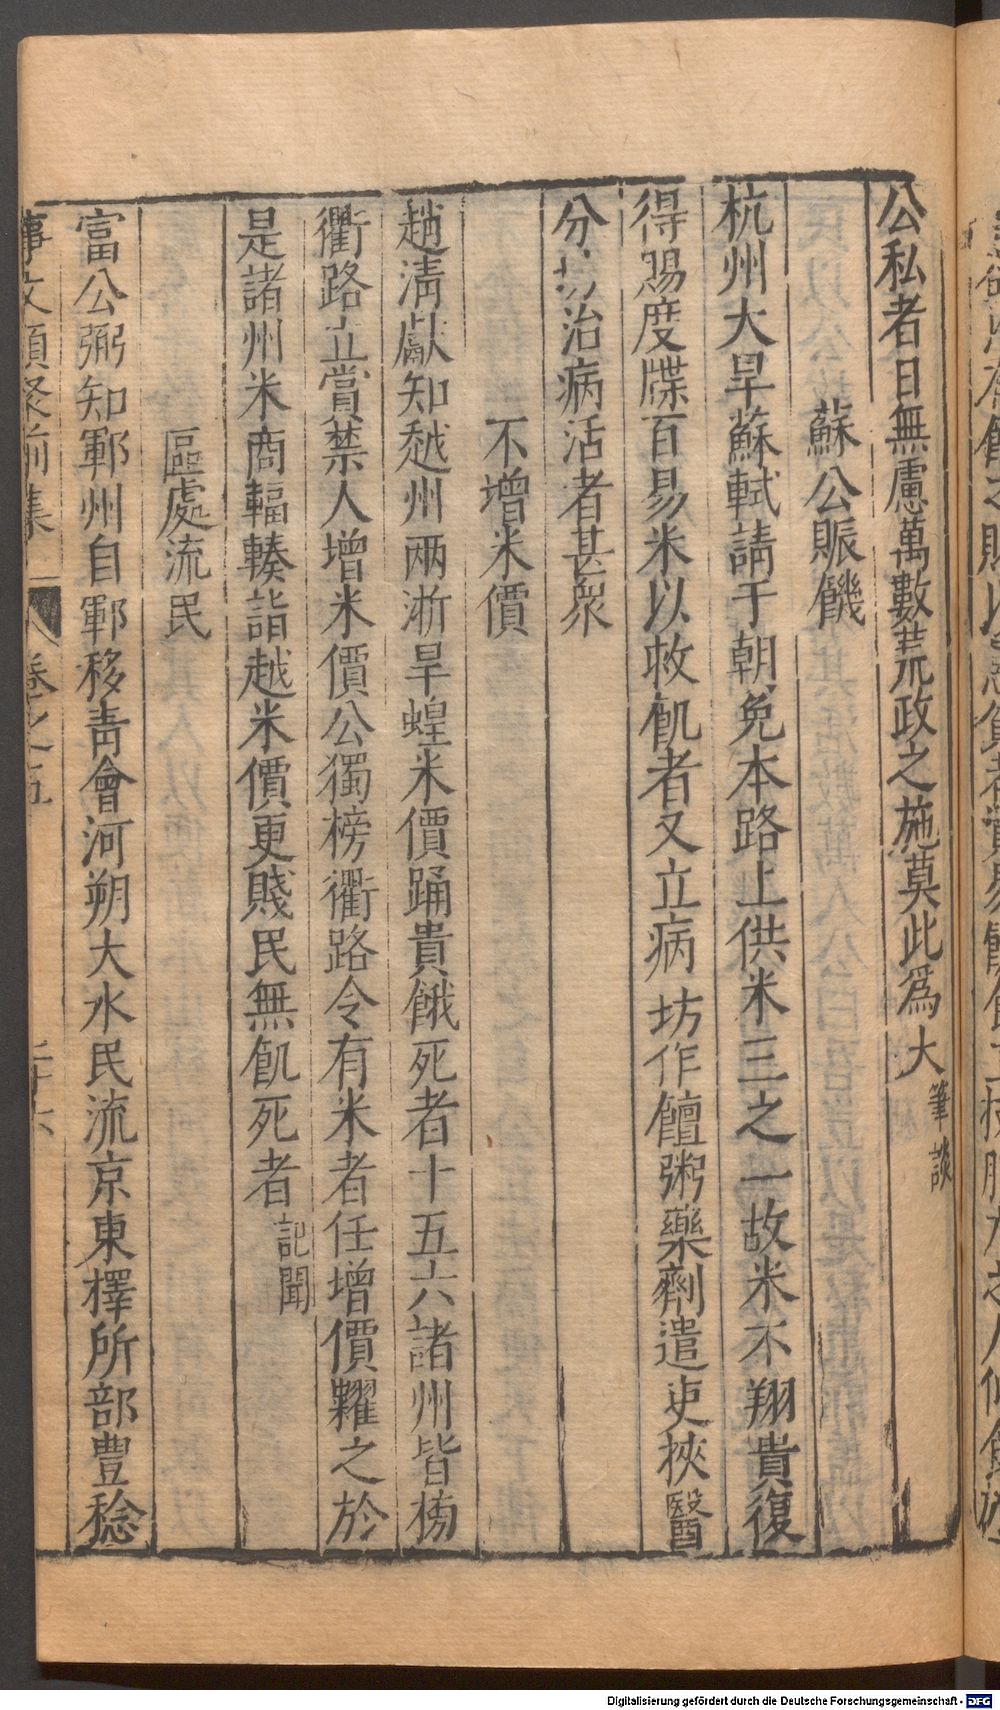 公私者日無慮萬數荒政之施莫此爲大筆談
蘇公賑饑
杭州大旱蘇軾請于朝免本路上供米三之一故米不翔貴復
得賜度牒百易米以救飢者又立病坊作饘粥藥劑遣吏挾醫
分坊治病活者甚衆
不增米價
趙清獻知越州兩浙旱蝗米價踊貴餓死者十五六諸州皆榜
衢路立賞禁人增米價公獨榜衢路令有米者任增價糶之於
是諸州米商輻輳詣越米價更賤民無飢死者記聞
區處流民
富公弼知鄆州自鄆移青會河朔大水民流京東擇所部豊稔
事文類聚前集 卷之五 二十六
Digitalisierung gefördert durch die Deutsche Forschungsgemeinschaft - DFG